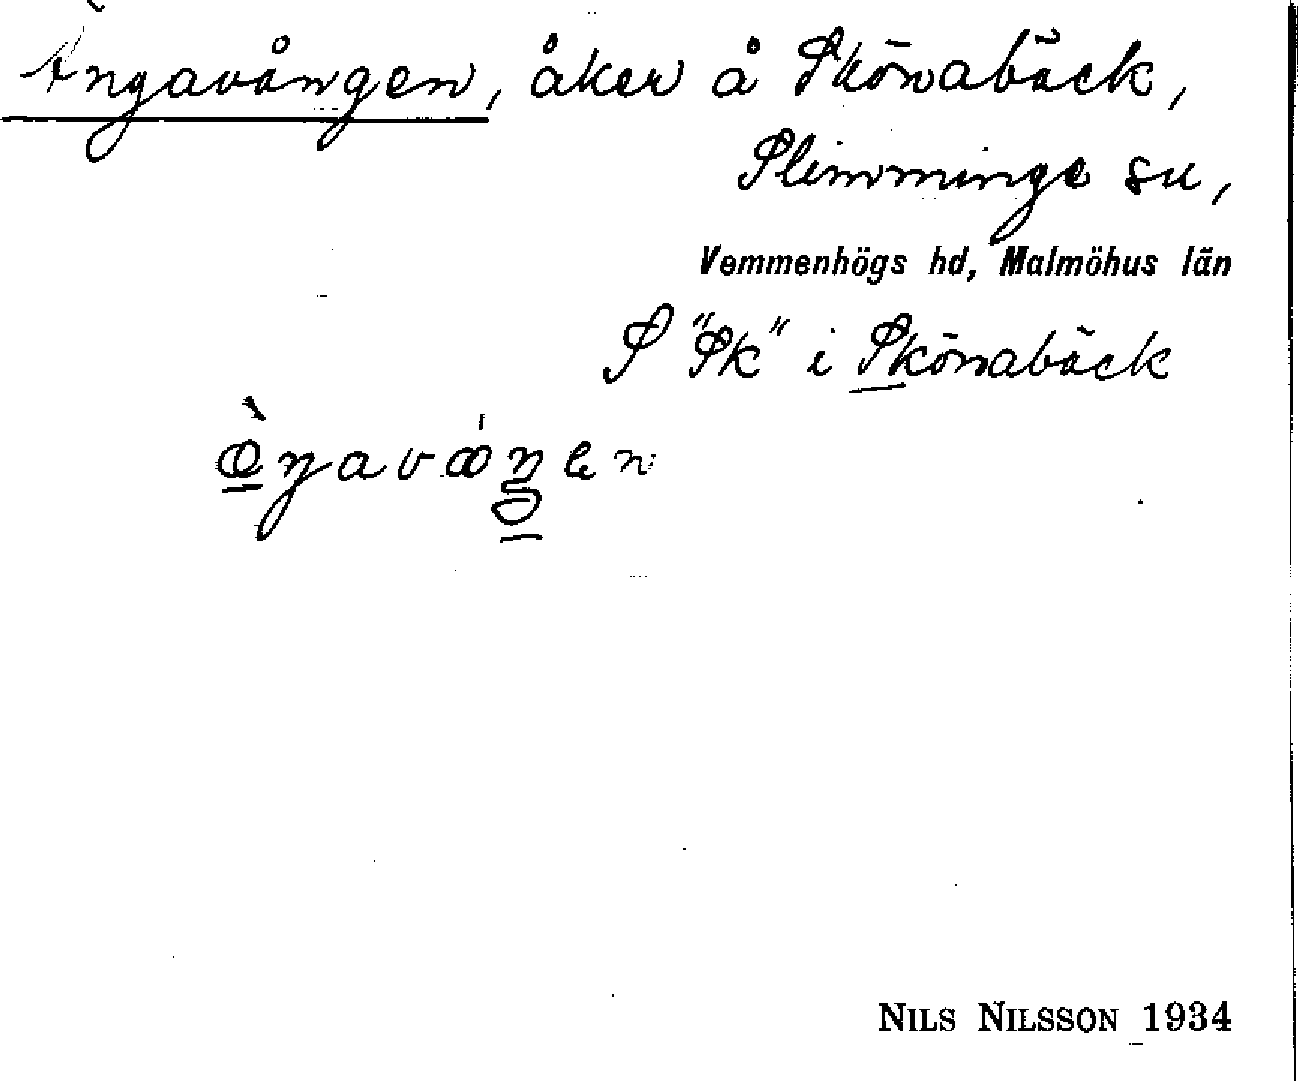 Ängavången, åker å Skönabäck,
Slimminge sn,
Vemmenhögs hd, Malmöhus län
S "Sk" i Skönabäck
NILS NILSSON 1934